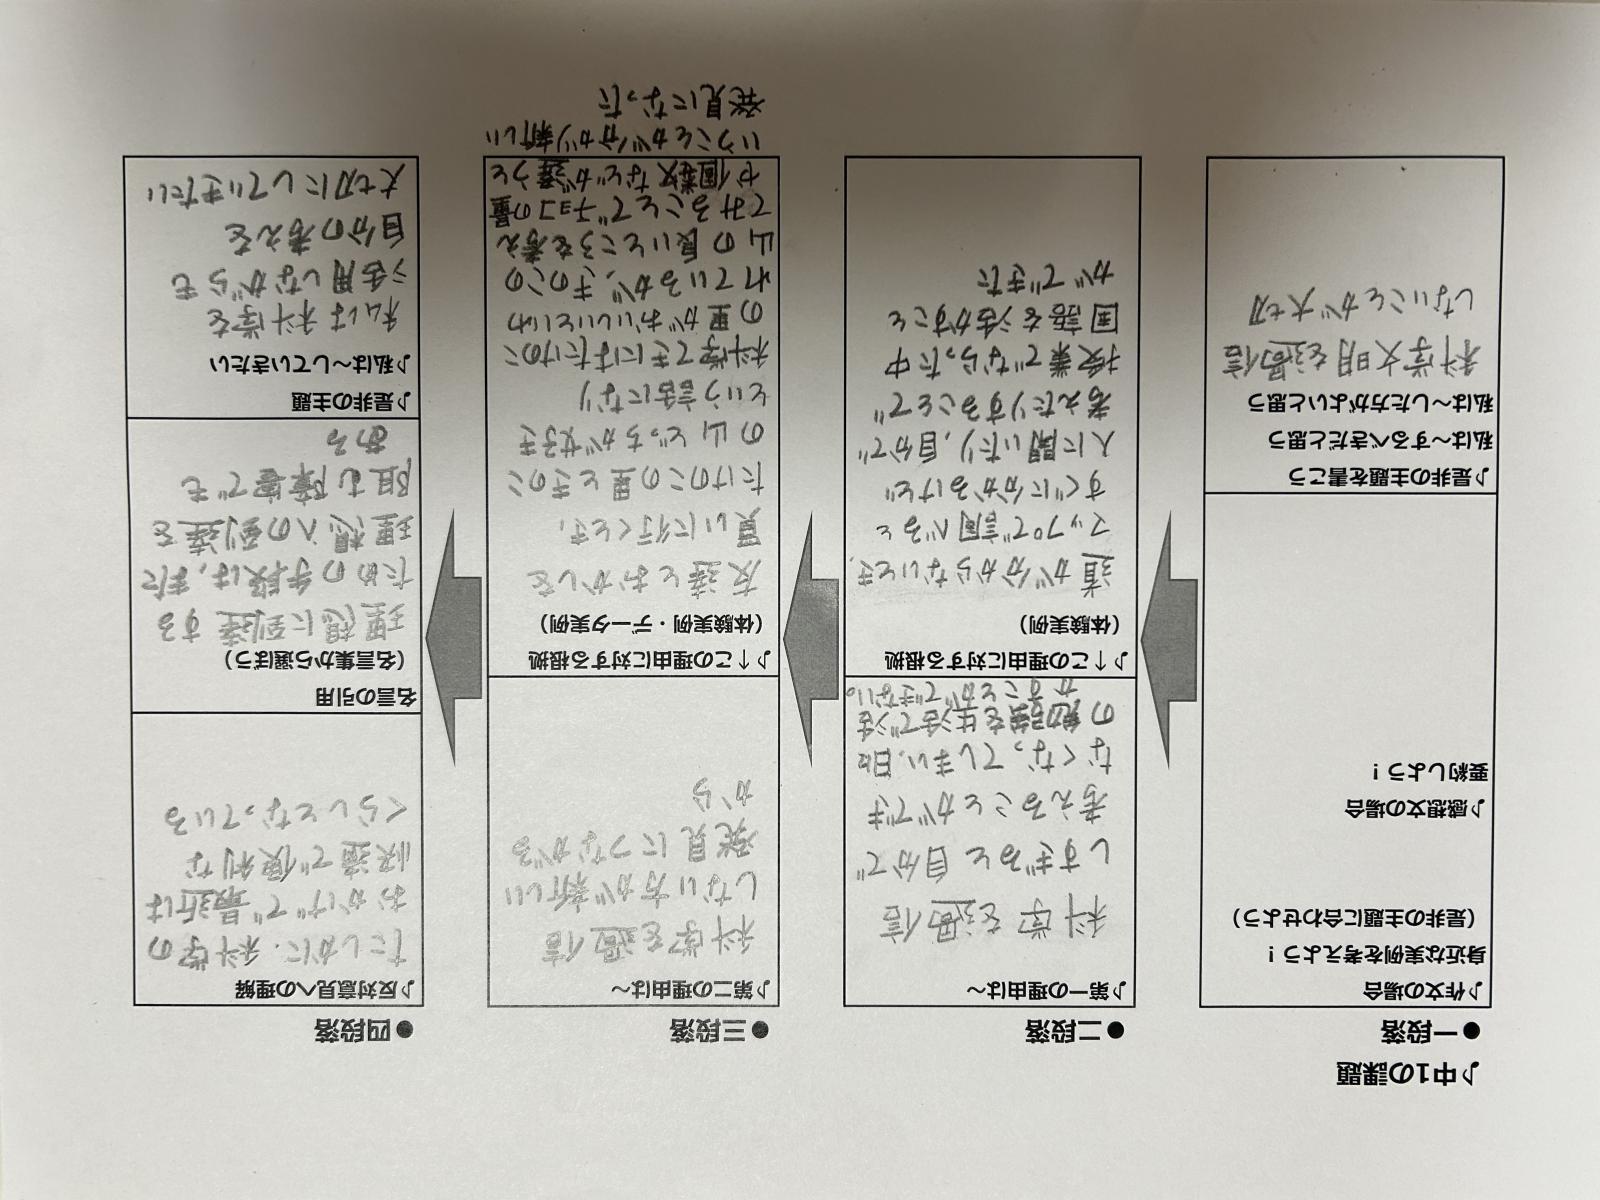 ♪中1の課題
●一段落
♪作文の場合
身近な実例を考えよう！
（是非の主題に合わせよう）
♪感想文の場合
要約しよう！
♪是非の主題を書こう
私は～するべきだと思う
私は～した方がよいと思う
科学文明を過信
しないことが大切
●二段落
♪第一の理由は～
科学を過信
しすぎると自分で
考えることができ
なくなってしまい、日々
の勉強を生活で活
かすことができない。
♪↑この理由に対する根拠
（体験実例）
道が分からないとき、
マップで調べると
すぐに分かるけど
人に聞いたり、自分で
考えたりすることで
授業でならった中
国語を活かすこと
ができた
●三段落
♪第二の理由は～
科学を過信
しない方が新しい
発見につながる
から
♪↑この理由に対する根拠
（体験実例・データ実例）
友達とおかしを
買いに行くとき、
たけのこの里ときのこ
の山どっちが好き
という話になり
科学てきにはたけのこ
の里がおいしいといわ
れているが、きのこの
山の良いところを考え
てみることでチョコの量
や個数などが違うと
いうことが分かり新しい
発見になった
●四段落
♪反対意見への理解
たしかに、科学の
おかげで最近は
快適で便利な
くらしとなっている
名言の引用
（名言集から選ぼう）
理想に到達する
ための手段は、また
理想への到達を
阻む障害でも
ある
♪是非の主題
♪私は～していきたい
私は科学を
活用しながらも
自分の考えを
大切にしていきたい